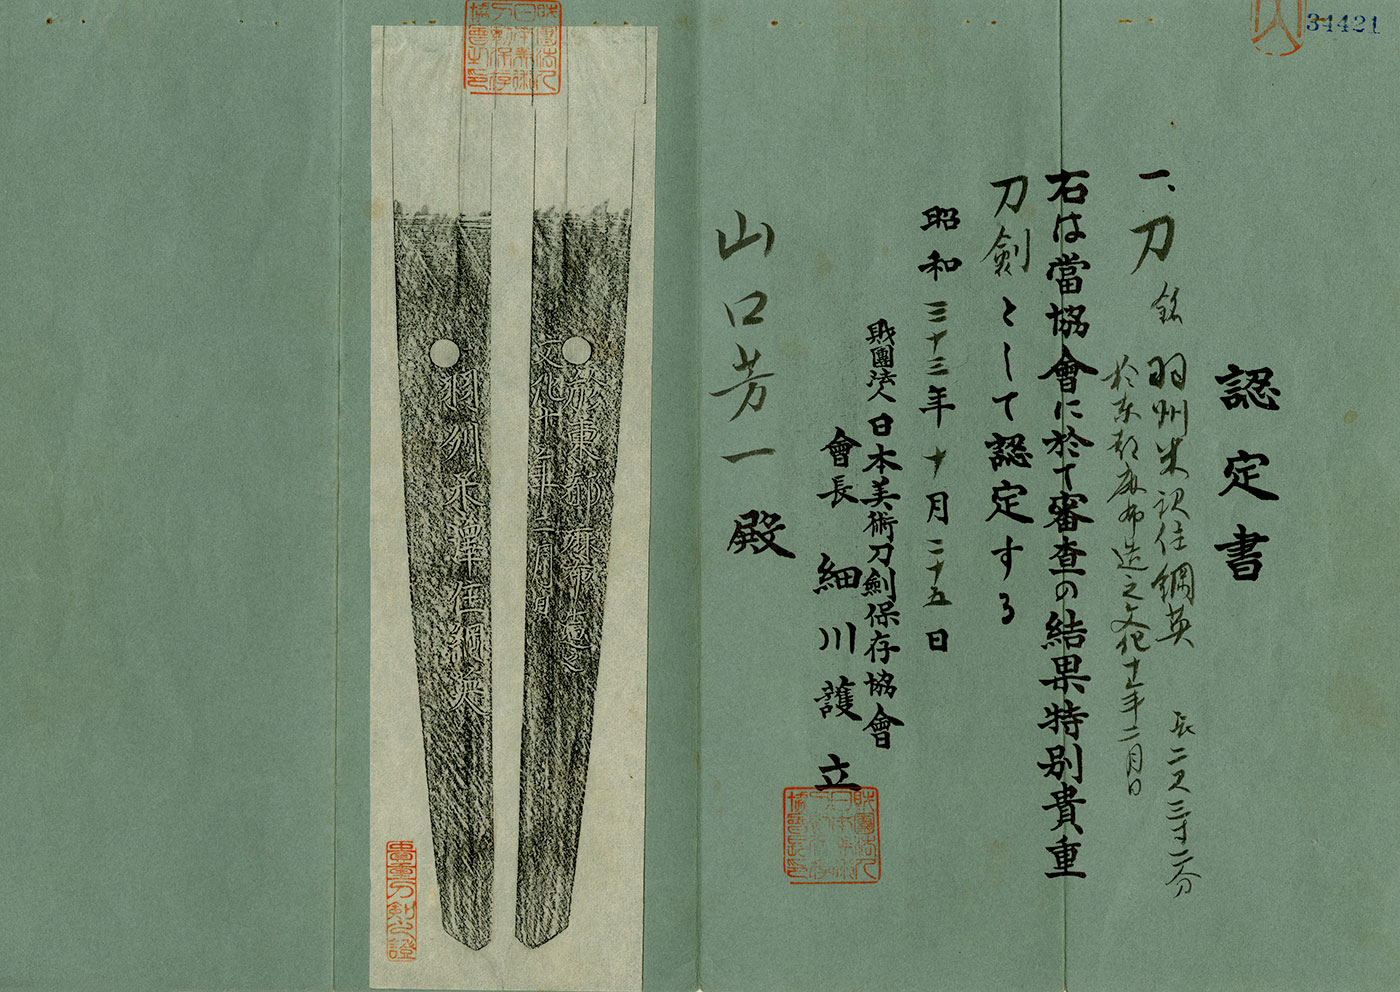 34421
認定書
一、刀 銘 羽州米沢住綱英 長二尺三寸二分
於東都麻布造之文化十年二月日
右は當協會に於て審査の結果特別貴重
刀劍として認定する
昭和三十三年十月二十五日
財團法人日本美術刀劍保存協會
會長 細川護立
山口芳一殿
於東都麻布造之
文化十年二月日
羽州米澤住綱英
貴重刀剣之證